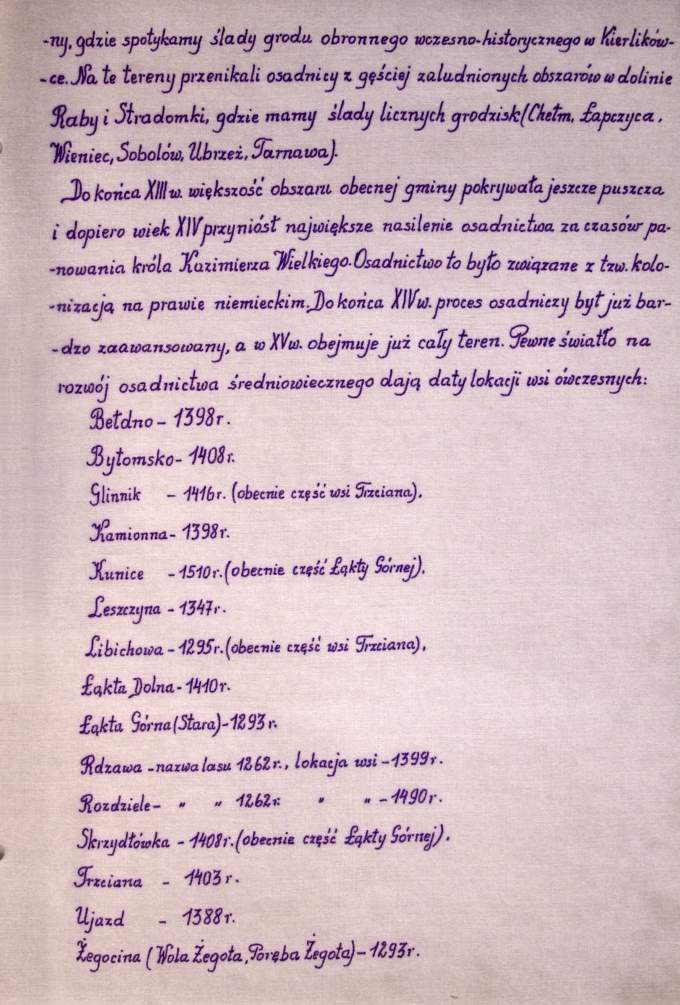 -ny, gdzie spotykamy ślady grodu obronnego wczesno-historycznego w Kierlików-
-ce. Na te tereny przenikali osadnicy z gęściej zaludnionych obszarów w dolinie
Raby i Stradomki, gdzie mamy ślady licznych grodzisk (Chełm, Łapczyca,
Wieniec, Sobolów, Ubrzeż, Tarnawa).
Do końca XIII w. większość obszaru obecnej gminy pokrywała jeszcze puszcza
i dopiero wiek XIV przyniósł największe nasilenie osadnictwa za czasów pa-
-nowania króla Kazimierza Wielkiego. Osadnictwo to było związane z tzw. kolo-
-nizacją na prawie niemieckim. Do końca XIV w. proces osadniczy był już bar-
-dzo zaawansowany, a w XV w. obejmuje już cały teren. Pewne światło na
rozwój osadnictwa średniowiecznego dają daty lokacji wsi ówczesnych:
Bełdno - 1398 r.
Bytomsko - 1408 r.
Glinnik - 1416 r. (obecnie część wsi Trzciana).
Kamionna - 1398 r.
Kunice - 1510 r. (obecnie część Łąkty Górnej).
Leszczyna - 1347 r.
Libichowa - 1295 r. (obecnie część wsi Trzciana).
Łąkta Dolna - 1410 r.
Łąkta Górna (Stara) - 1293 r.
Rdzawa - nazwa lasu 1262 r., lokacja wsi - 1399 r.
Rozdziele - " " 1262 r. " " - 1490 r.
Skrzydłówka - 1408 r. (obecnie część Łąkty Górnej).
Trzciana - 1403 r.
Ujazd - 1388 r.
Żegocina (Wola Żegota, Poręba Żegota) - 1293 r.